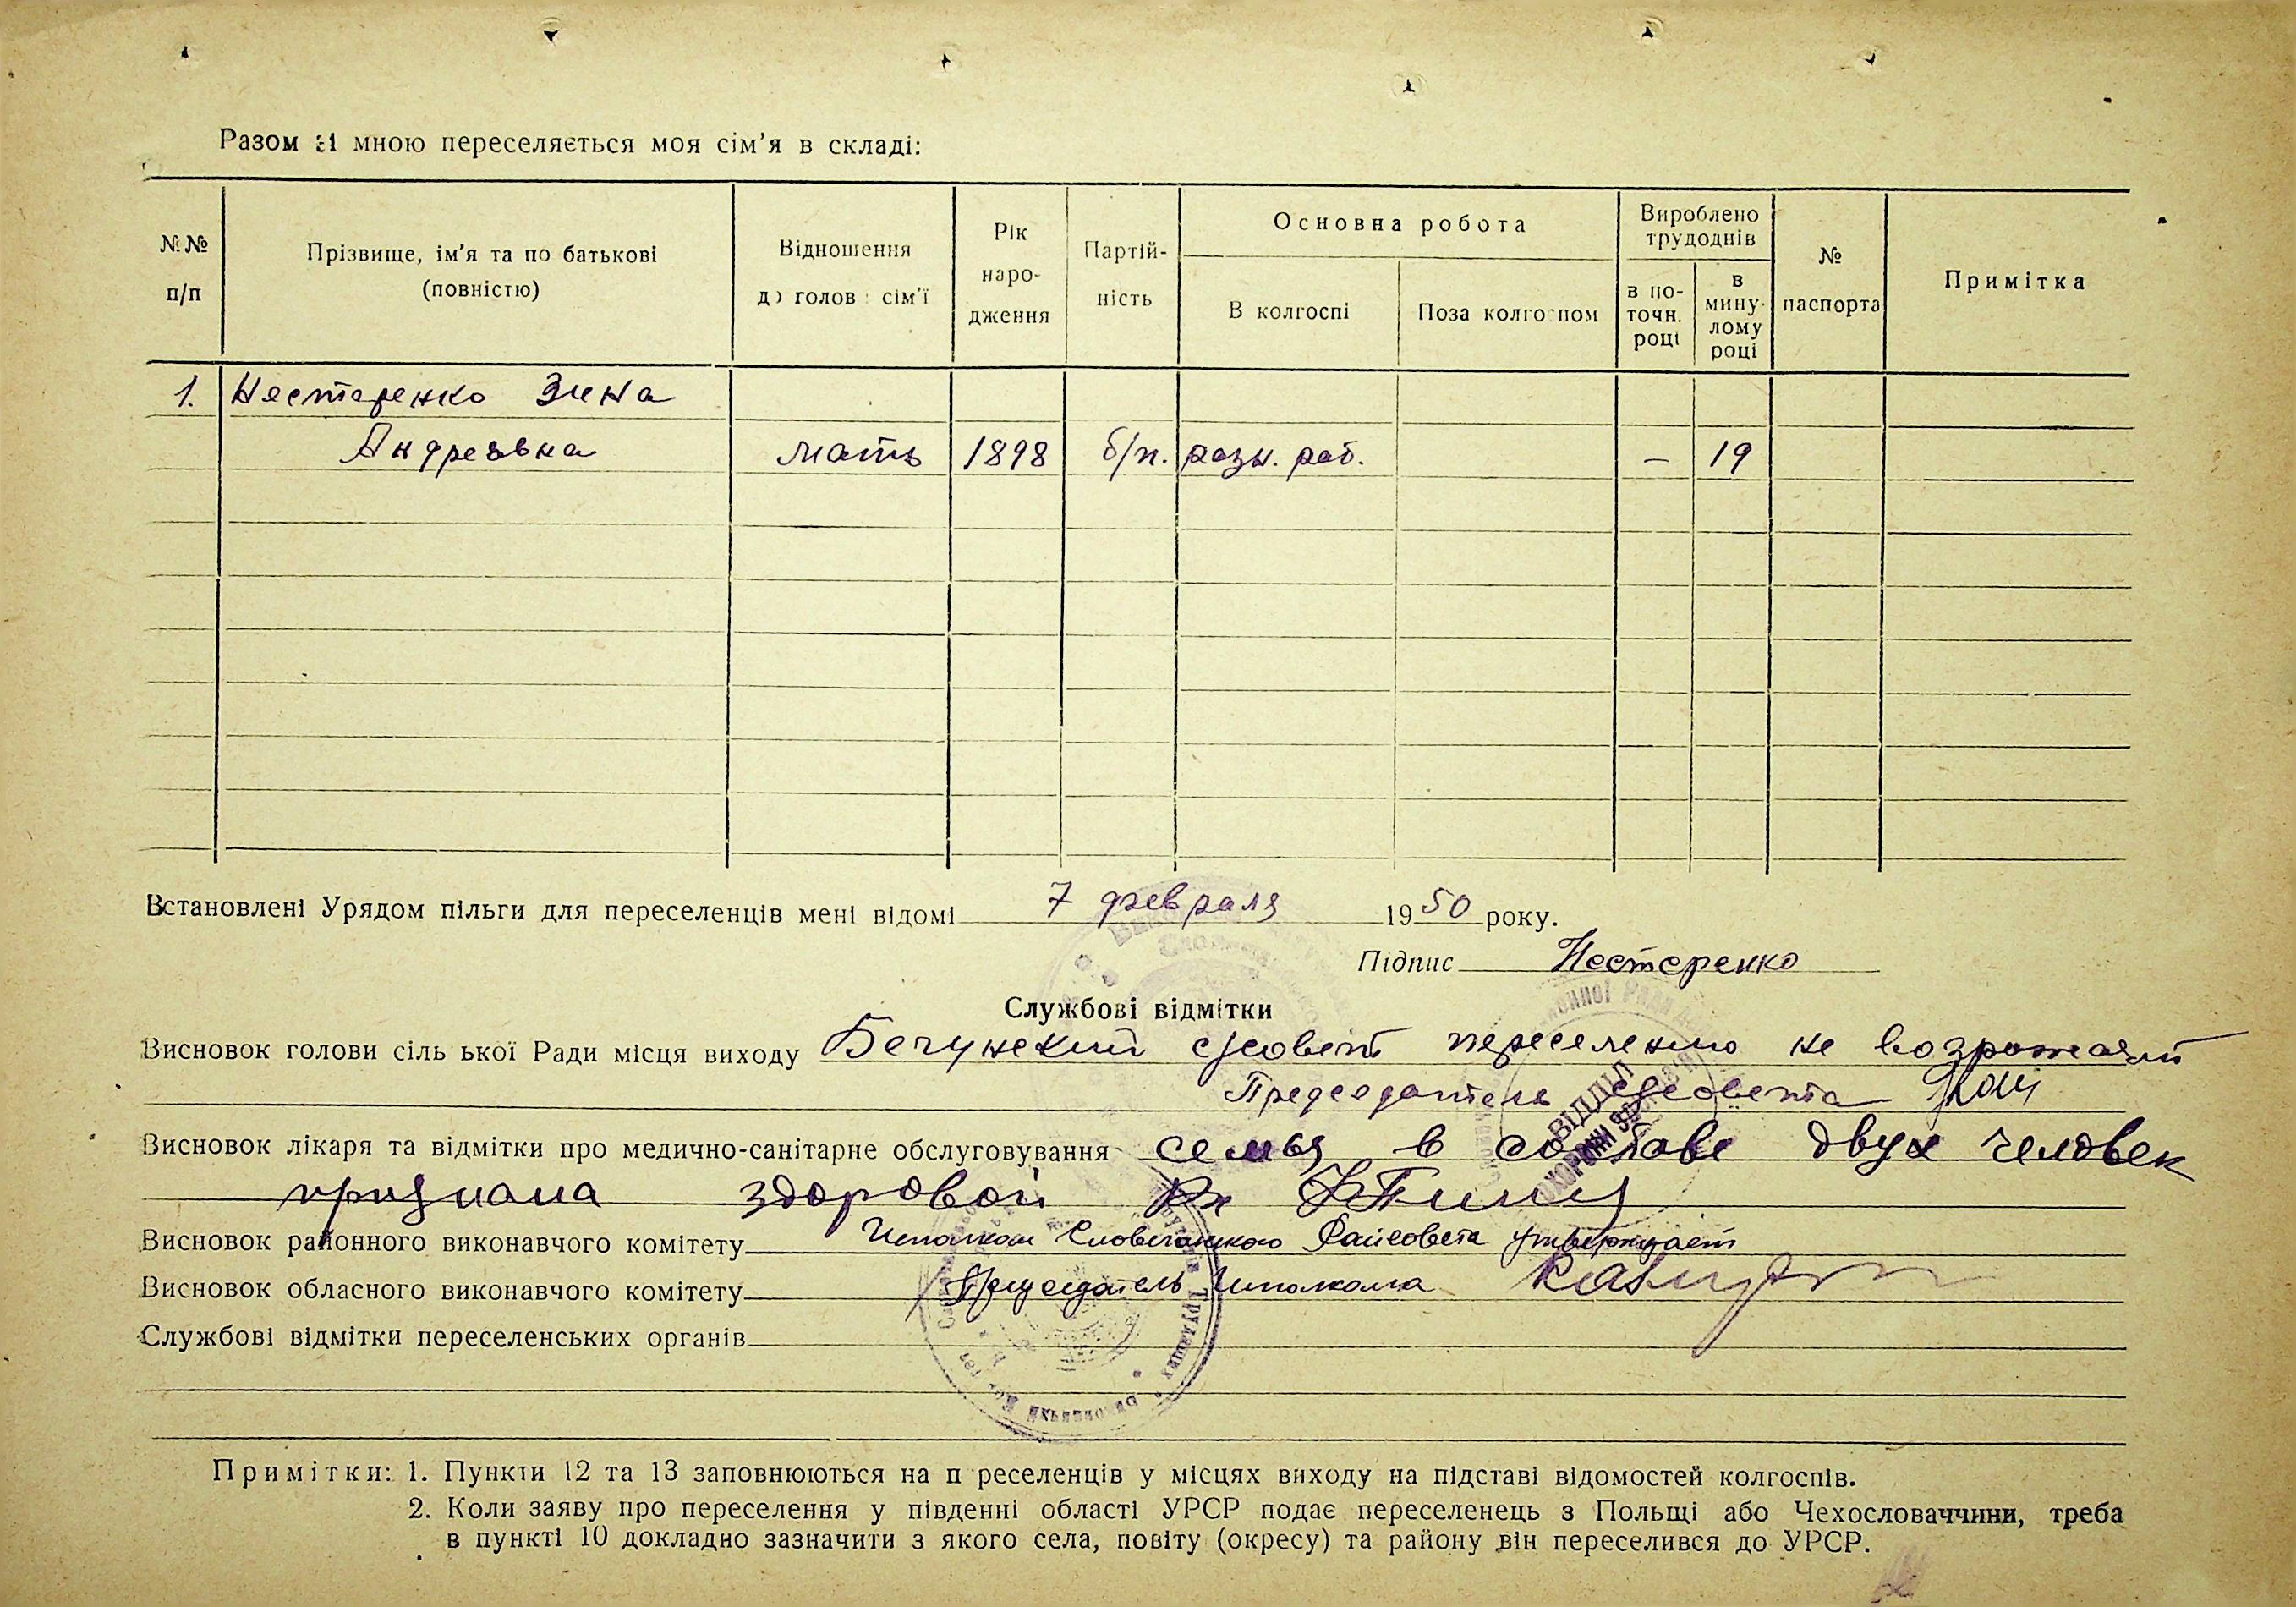 Разом зі мною переселяється моя сім'я в складі:
№№ п/п
Прізвище, ім'я та по батькові (повністю)
Відношення до голови сім'ї
Рік народження
Партійність
Основна робота
В колгоспі
Поза колгоспом
Вироблено трудоднів
в поточн. році
в минулому році
№ паспорта
Примітка
1. Нестеренко Зина
Андреевна мать 1898 б/п. разн. раб. — 19
Встановлені Урядом пільги для переселенців мені відомі 7 февраля 1950 року.
Підпис Нестеренко
Службові відмітки
Висновок голови сільської Ради місця виходу Бегунский с/совет переселению не возражает
Председатель с/совета
Висновок лікаря та відмітки про медично-санітарне обслуговування семья в составе двух человек
признана здоровой
Висновок районного виконавчого комітету Исполком Словечанского Райсовета утверждает
Висновок обласного виконавчого комітету Председатель Исполкома
Службові відмітки переселенських органів
ВІДДІЛ
ОХОРОНИ
Примітки: 1. Пункти 12 та 13 заповнюються на п реселенців у місцях виходу на підставі відомостей колгоспів.
2. Коли заяву про переселення у південні області УРСР подає переселенець з Польщі або Чехословаччини, треба
в пункті 10 докладно зазначити з якого села, повіту (окресу) та району він переселився до УРСР.